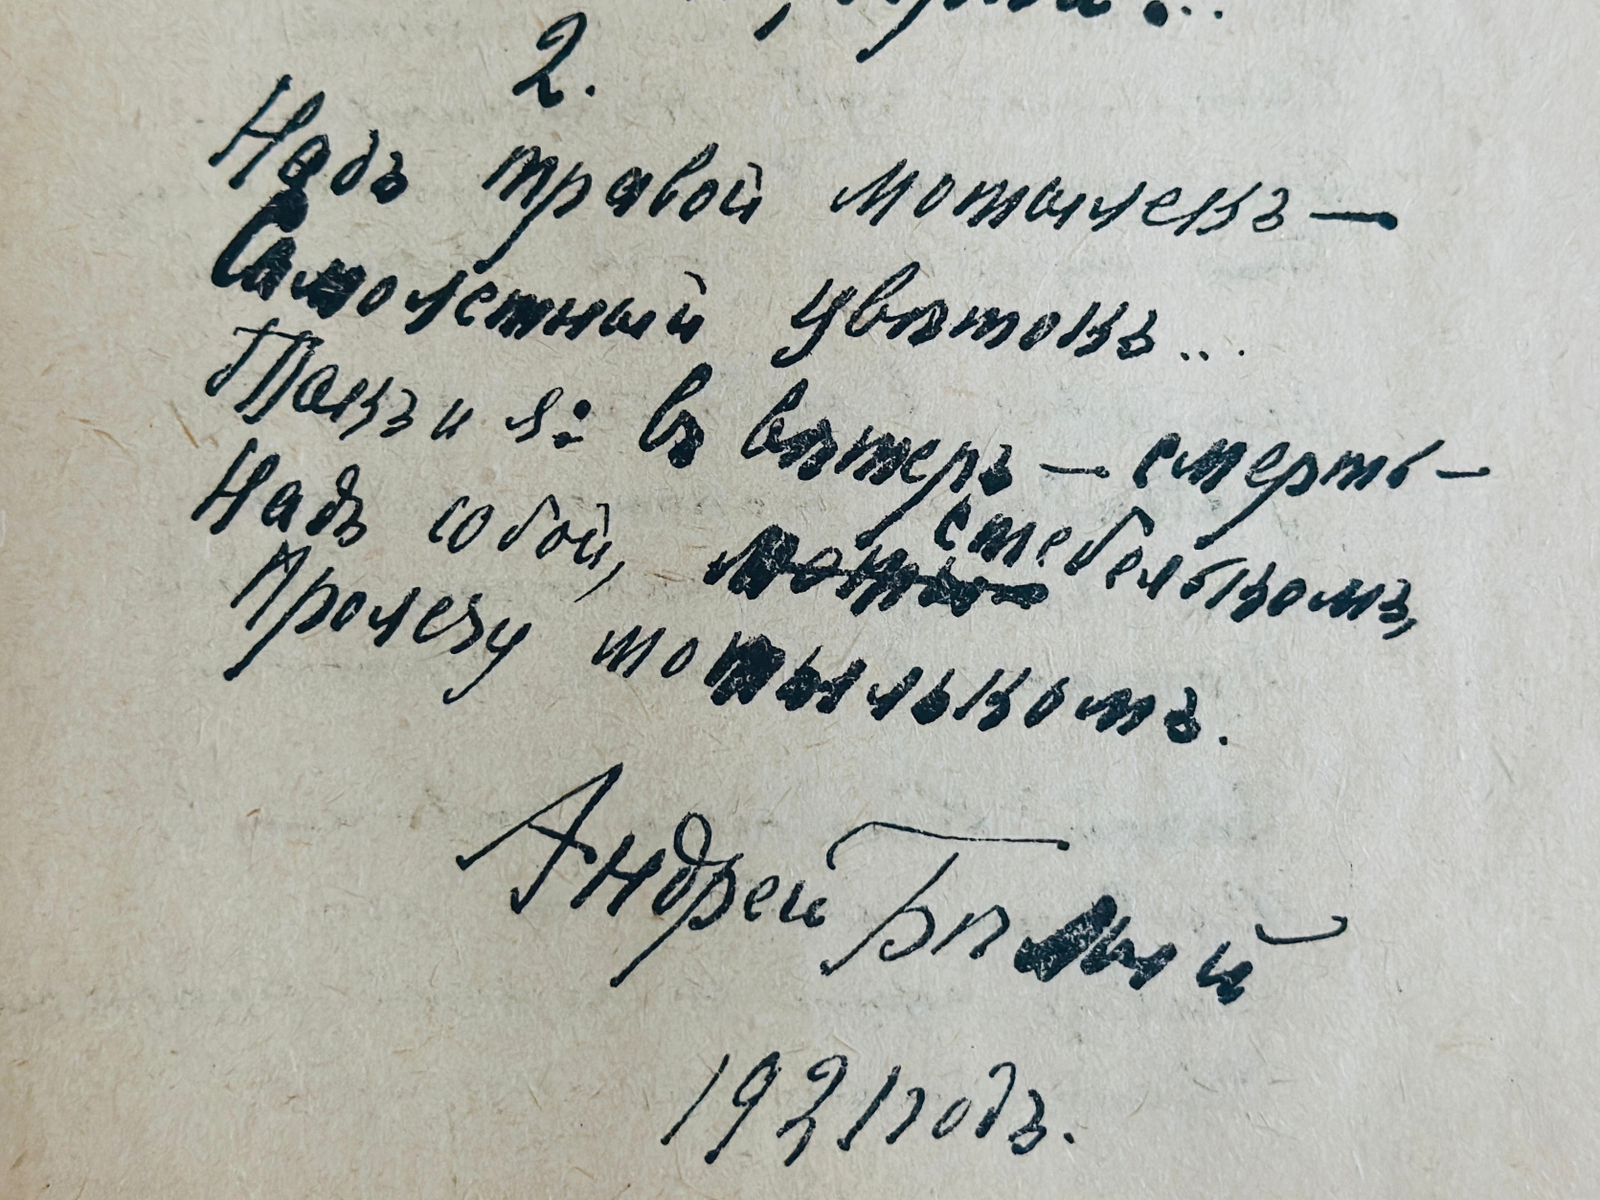 2.
Надъ травой мотылекъ —
Самолетный цвѣтокъ...
Такъ и я: въ вѣтеръ — смерть —
Надъ собой, стебелькомъ,
Пролечу мотылькомъ.
Андрей Бѣлый
1921 годъ.